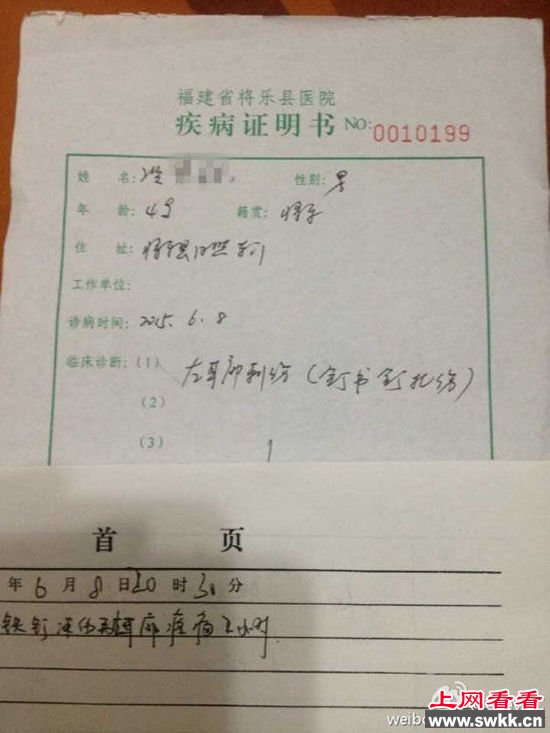 福建省将乐县医院
疾病证明书 NO:0010199
姓 名: 性别:男
年 龄:4岁 籍贯:将乐
住 址:将乐县
工作单位:
诊病时间:2015.6.8
临床诊断:(1) 左耳廓刺伤(钉书钉扎伤)
(2)
(3)
首 页
年6月8日20时30分
铁钉 耳廓疼痛 小时
上网看看
www.swkk.cn